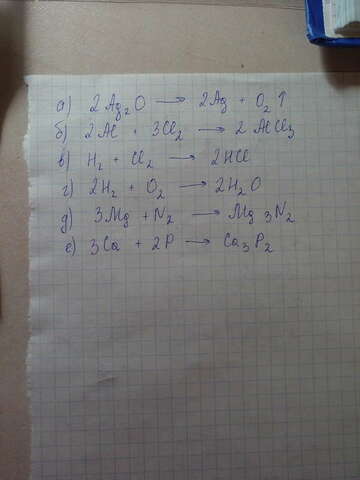 а) 2Ag₂O → 2Ag + O₂↑
б) 2Al + 3Cl₂ → 2AlCl₃
в) H₂ + Cl₂ → 2HCl
г) 2H₂ + O₂ → 2H₂O
д) 3Mg + N₂ → Mg₃N₂
е) 3Ca + 2P → Ca₃P₂